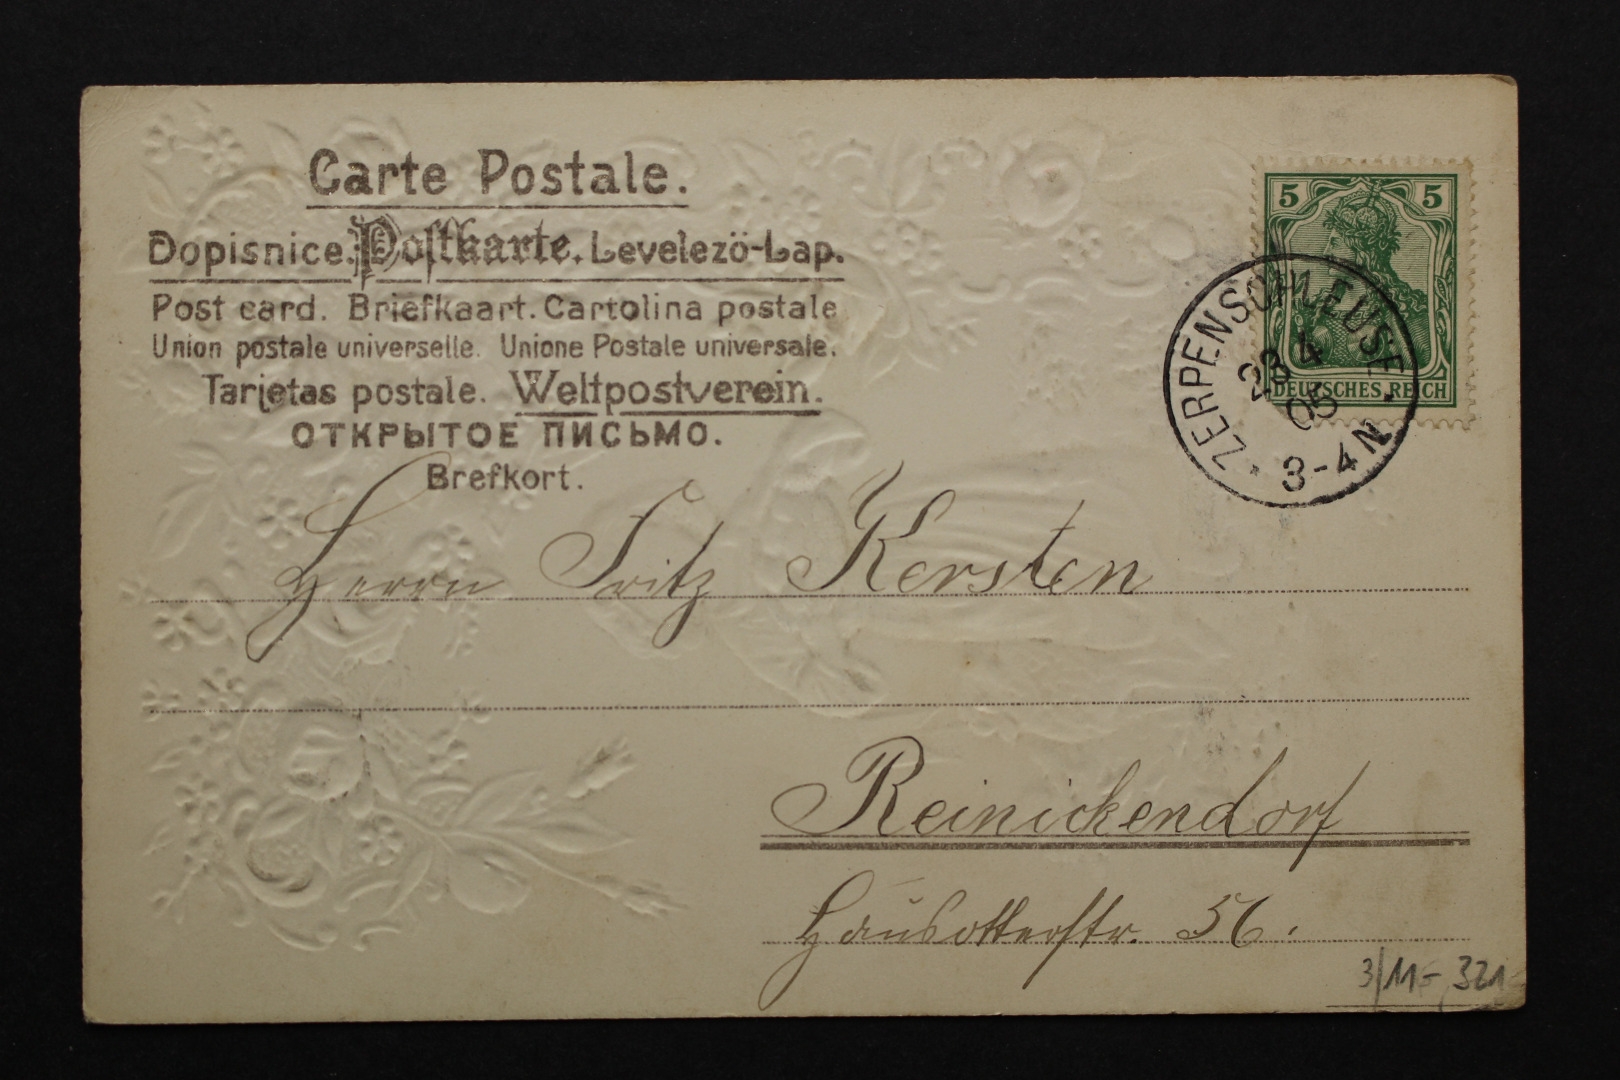 Carte Postale.
Dopisnice. Postkarte. Levelezö-Lap.
Post card. Briefkaart. Cartolina postale
Union postale universelle. Unione Postale universale.
Tarjetas postale. Weltpostverein.
ОТКРЫТОЕ ПИСЬМО.
Brefkort.
5 5
DEUTSCHES REICH
ZERPENSCHLEUSE
23 4
05
3-4N
Herrn Fritz Kersten
Reinickendorf
Hausotterstr. 56.
3/11-, 321